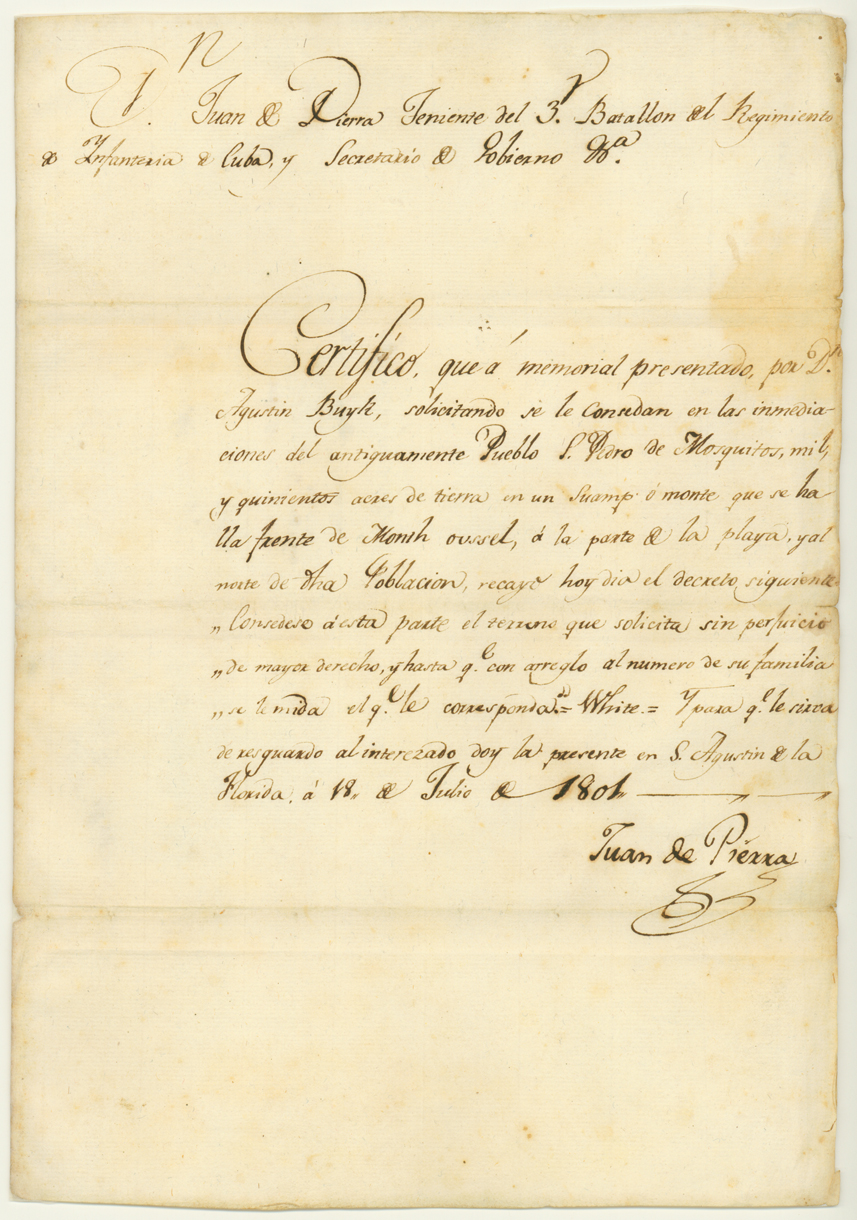 Dn. Juan de Pierra Teniente del 3r. Batallon del Regimiento
de Ynfanteria de Cuba, y Secretario de Gobierno &a.
Certifico, que á memorial presentado, por Dn.
Agustin Buyk, solicitando se le Consedan en las inmedia-
ciones del antiguamente Pueblo S. Pedro de Mosquitos, mil,
y quinientos acres de tierra en un Suamp ó monte que se ha-
lla frente de Month oussel, á la parte de la playa, y al
norte de dha Poblacion, recayó hoy dia el decreto siguiente
„ Consedese á esta parte el terreno que solicita sin perjuicio
„ de mayor derecho, y hasta qe. con arreglo al numero de su familia
„ se le mida el qe. le corresponda = White = Y para qe. le sirva
de resguardo al interezado doy la presente en S. Agustin de la
Florida, á 18„ de Julio de 1801„
Juan de Pierra